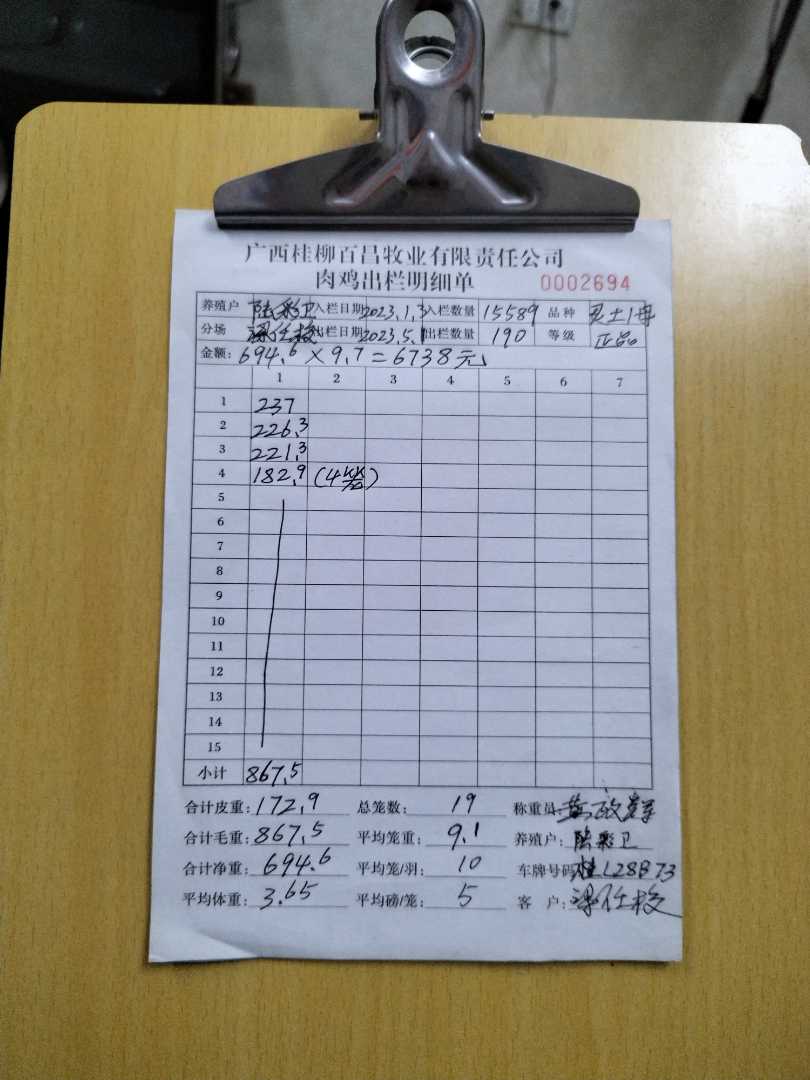 广西桂柳百昌牧业有限责任公司
肉鸡出栏明细单 0002694
养殖户 陆彩卫 入栏日期 2023.1.3 入栏数量 15589 品种
分场 出栏日期 2023.5.1 出栏数量 190 等级 正品
金额: 694.6 × 9.7 = 6738元
1 2 3 4 5 6 7
1 237
2 226.3
3 221.3
4 182.9 (4)
5
6
7
8
9
10
11
12
13
14
15
小计 867.5
合计皮重: 172.9 总笼数: 19 称重员:
合计毛重: 867.5 平均笼重: 9.1 养殖户: 陆彩卫
合计净重: 694.6 平均笼/羽: 10 车牌号码: 桂L28B73
平均体重: 3.65 平均磅/笼: 5 客户: